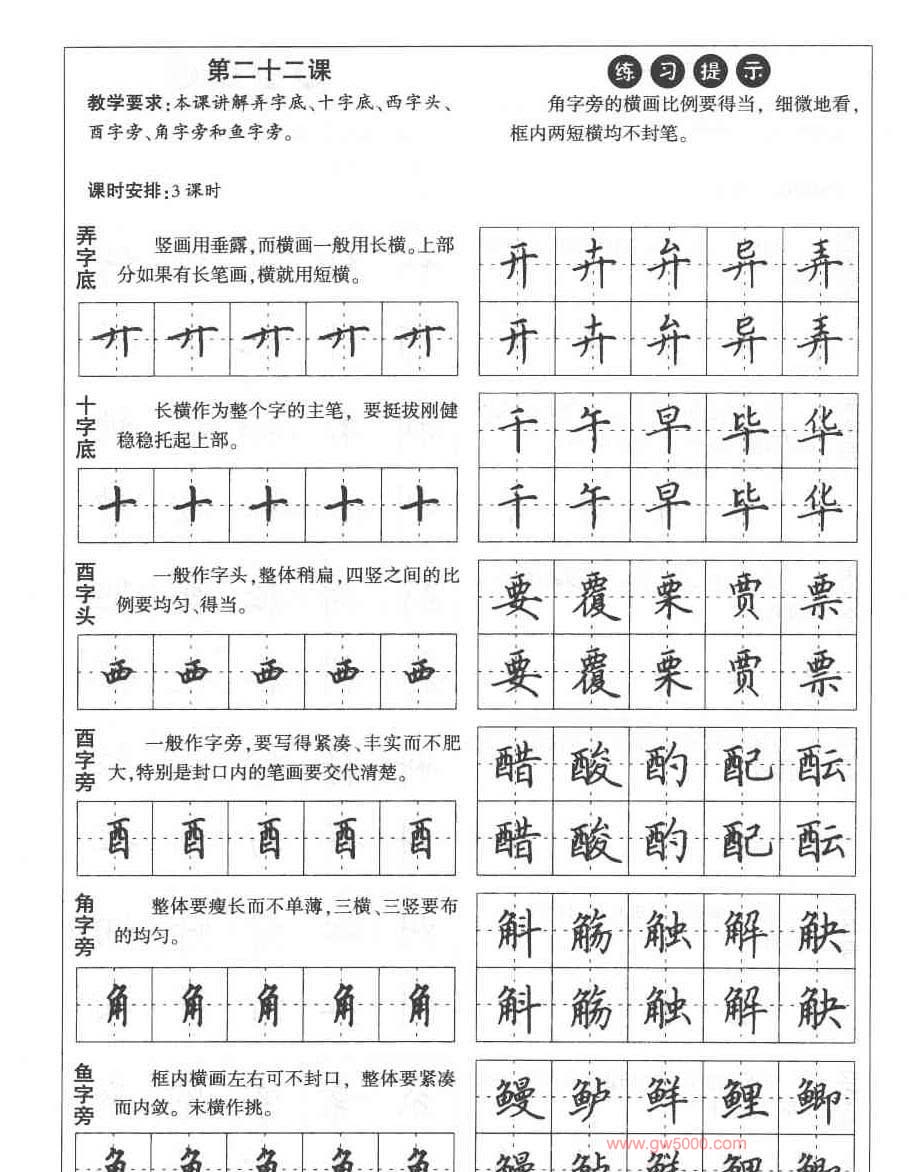 第二十二课
教学要求:本课讲解弄字底、十字底、西字头、
酉字旁、角字旁和鱼字旁。
课时安排:3课时
练习提示
角字旁的横画比例要得当，细微地看，
框内两短横均不封笔。
弄字底
竖画用垂露,而横画一般用长横。上部
分如果有长笔画,横就用短横。
廾 廾 廾 廾 廾
开 卉 弁 异 弄
开 卉 弁 异 弄
十字底
长横作为整个字的主笔，要挺拔刚健
稳稳托起上部。
十 十 十 十 十
千 午 早 毕 华
千 午 早 毕 华
西字头
一般作字头,整体稍扁,四竖之间的比
例要均匀、得当。
西 西 西 西 西
要 覆 栗 贾 票
要 覆 栗 贾 票
酉字旁
一般作字旁,要写得紧凑、丰实而不肥
大,特别是封口内的笔画要交代清楚。
酉 酉 酉 酉 酉
醋 酸 酌 配 酝
醋 酸 酌 配 酝
角字旁
整体要瘦长而不单薄,三横、三竖要布
的均匀。
角 角 角 角 角
斛 觞 触 解 觖
斛 觞 触 解 觖
鱼字旁
框内横画左右可不封口，整体要紧凑
而内敛。末横作挑。
鳗 鲈 鲜 鲤 鲫
www.gw5000.com